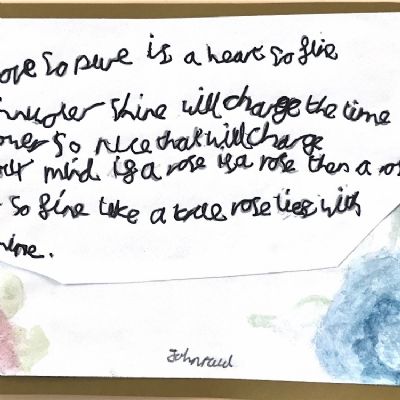 ove so pure is a heart so fine
shine will change the time
ower so nice that will change
mind. if a rose is a rose then a ros
so fine like a true rose lies with
ine.
Johnpaul